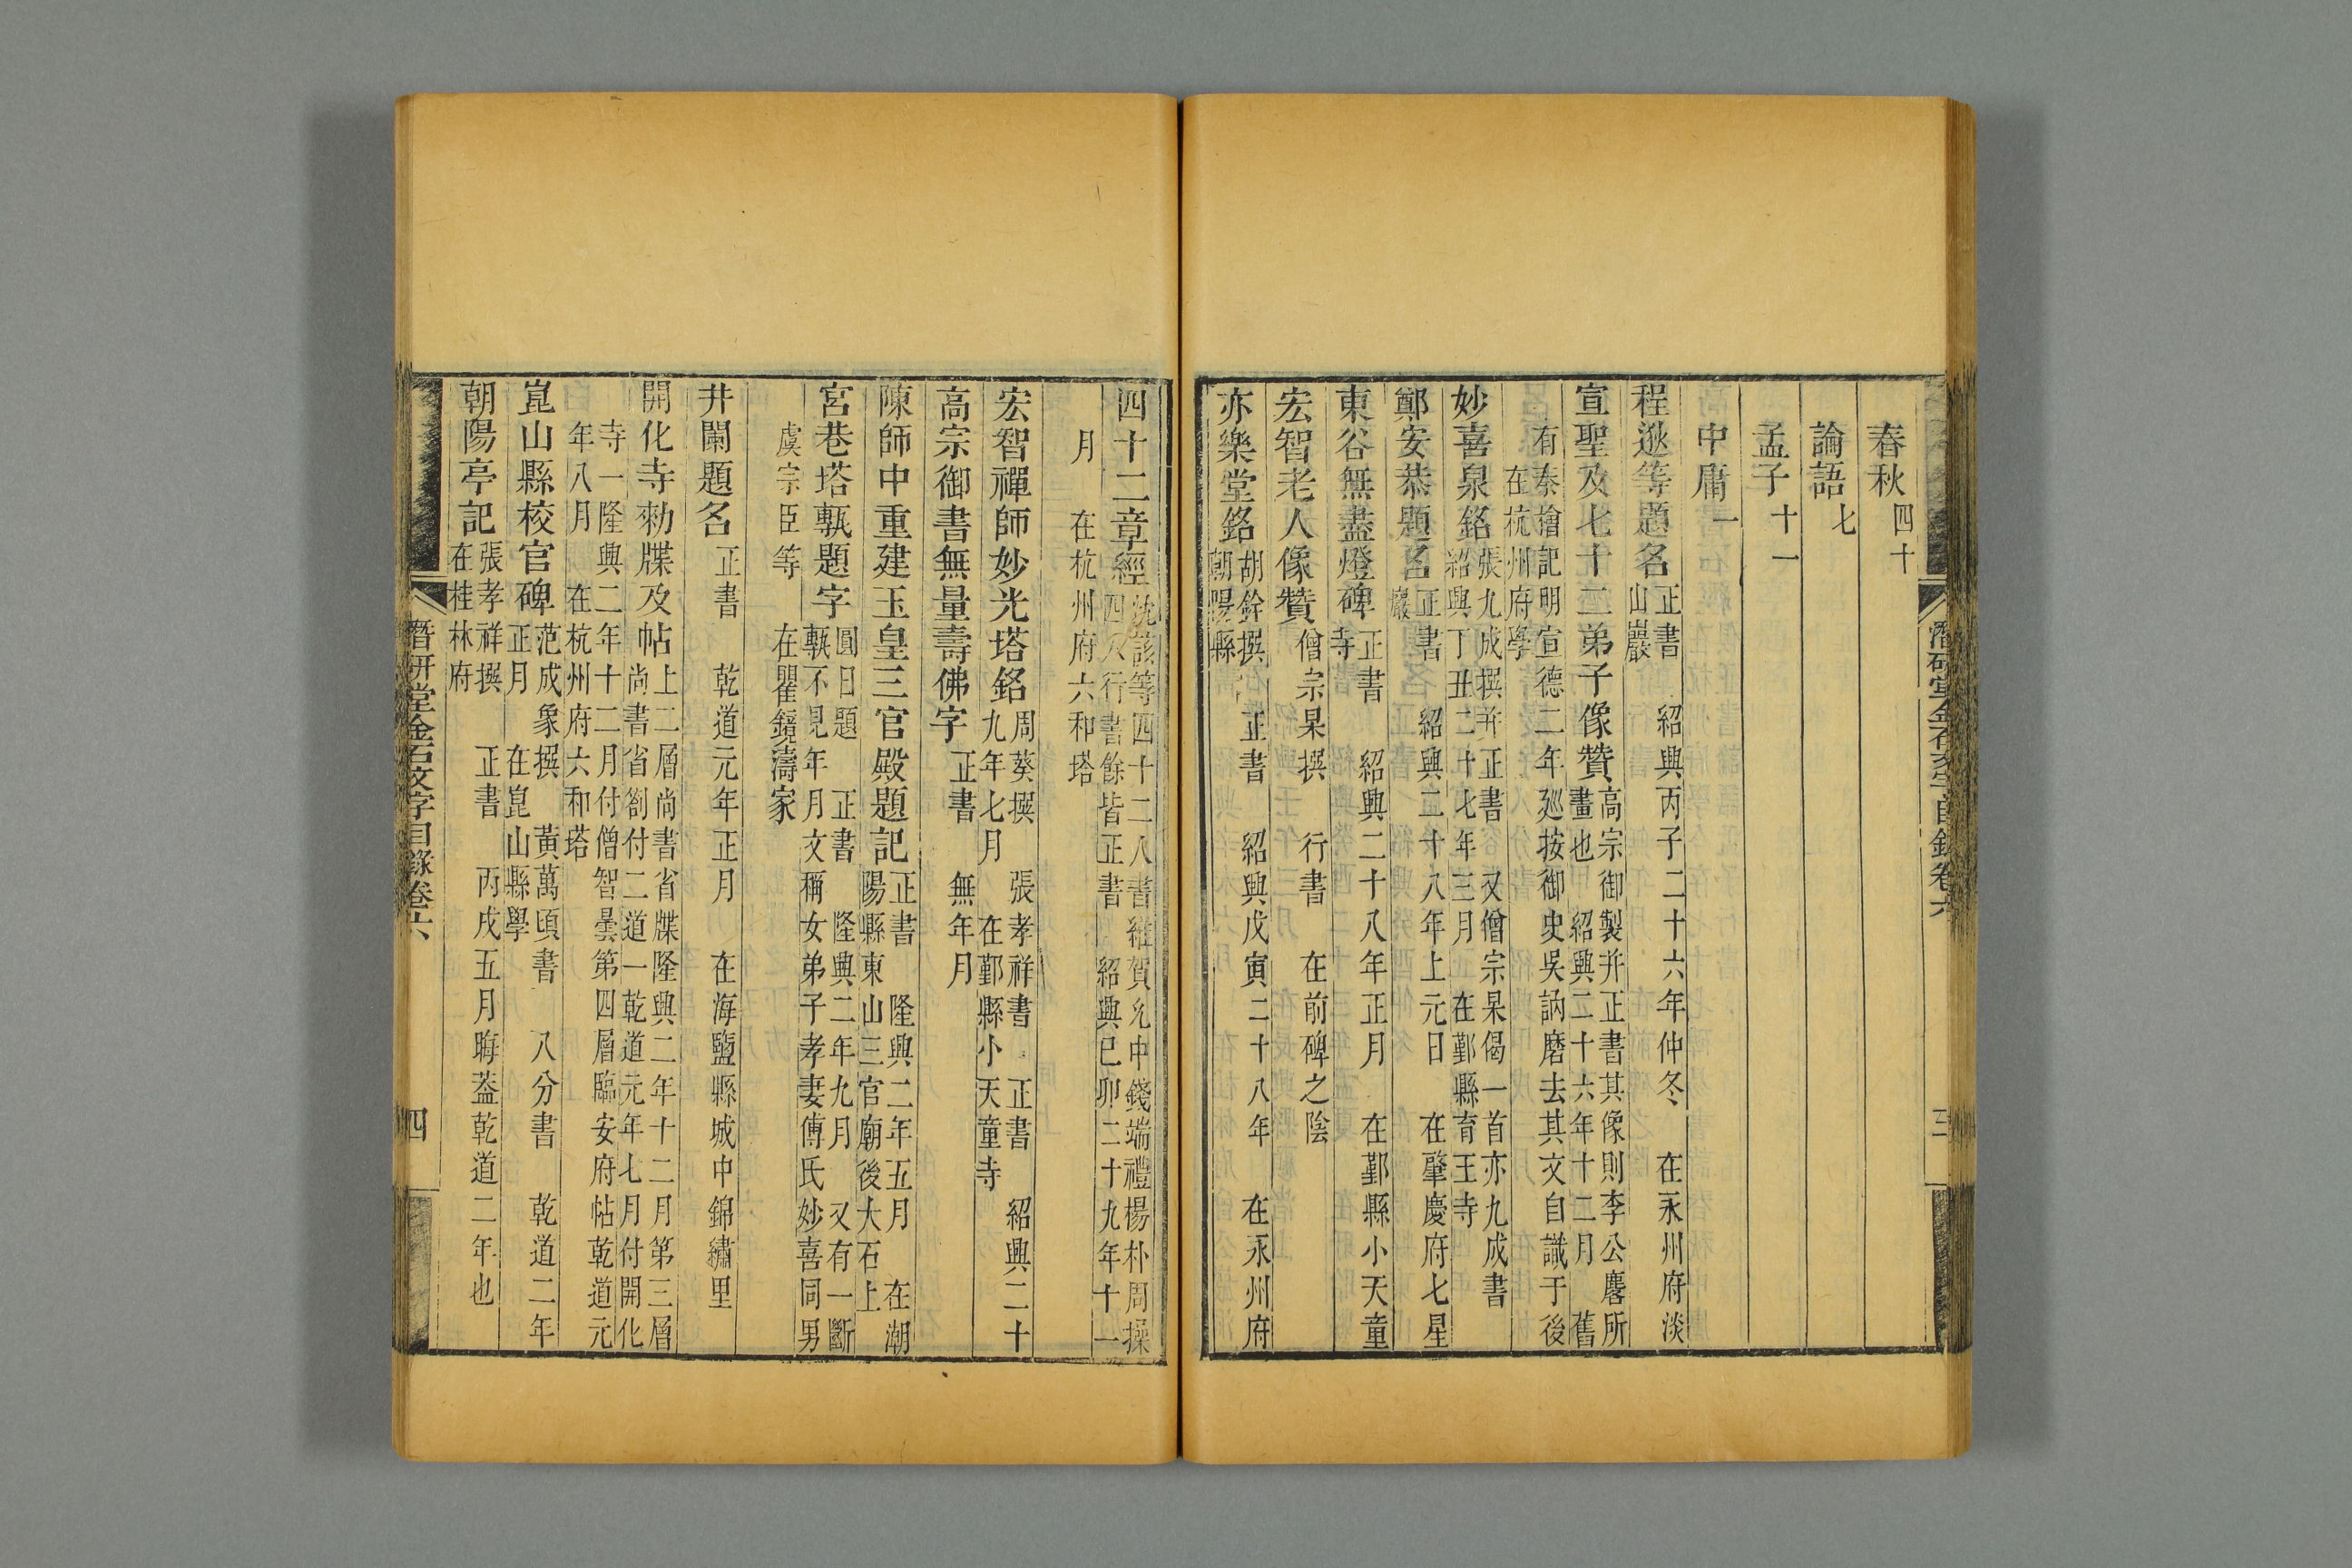 春秋四十
論語七
孟子十一
中庸一
程逖等題名正書　紹興丙子二十六年仲冬　在永州府淡
山巖
宣聖及七十二弟子像贊高宗御製并正書其像則李公麐所
畫也　紹興二十六年十二月　舊
有秦檜記明宣德二年廵按御史吳訥磨去其文自識于後
在杭州府學
妙喜泉銘張九成撰并正書　又僧宗杲偈一首亦九成書
紹興丁丑二十七年三月　在鄞縣育王寺
鄭安恭題名正書　紹興二十八年上元日　在肇慶府七星
巖
東谷無盡燈碑正書　紹興二十八年正月　在鄞縣小天童
寺
宏智老人像贊僧宗杲撰　行書　在前碑之陰
亦樂堂銘胡銓撰　正書　紹興戊寅二十八年　在永州府
朝陽縣
潛研堂金石文字目錄卷六　三
四十二章經沈該等四十二人書維賀允中錢端禮楊朴周操
四人行書餘皆正書　紹興己卯二十九年十一
月　在杭州府六和塔
宏智禪師妙光塔銘周葵撰　張孝祥書　正書　紹興二十
九年七月　在鄞縣小天童寺
高宗御書無量壽佛字正書　無年月
陳師中重建玉皇三官殿題記正書　隆興二年五月　在潮
陽縣東山三官廟後大石上
宮巷塔甎題字圓日題　正書　隆興二年九月　又有一斷
甎不見年月文稱女弟子孝妻傅氏妙喜同男
虞宗臣等　在瞿鏡濤家
井闌題名正書　乾道元年正月　在海鹽縣城中錦繡里
開化寺勑牒及帖上二層尚書省牒隆興二年十二月第三層
尚書省劄付二道一乾道元年七月付開化
寺一隆興二年十二月付僧智曇第四層臨安府帖乾道元
年八月　在杭州府六和塔
崑山縣校官碑范成象撰　黃萬頃書　八分書　乾道二年
正月　在崑山縣學
朝陽亭記張孝祥撰　正書　丙戌五月晦葢乾道二年也
在桂林府
潛研堂金石文字目錄卷六　四